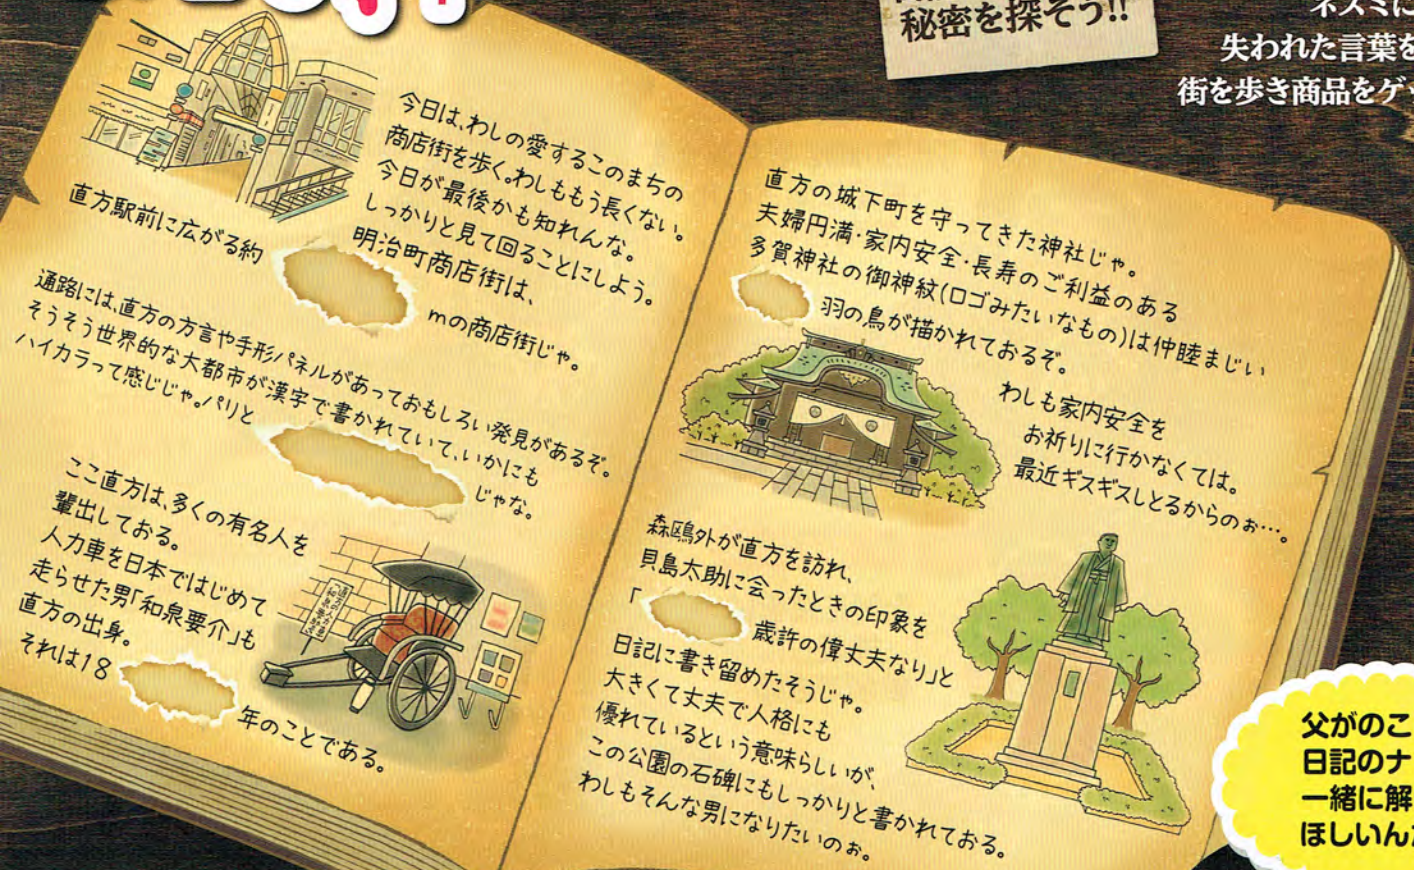 秘密を探そう!!
ネズミに
失われた言葉を
街を歩き商品をゲッ
今日は、わしの愛するこのまちの
商店街を歩く。わしももう長くない。
今日が最後かも知れんな。
しっかりと見て回ることにしよう。
明治町商店街は、
直方駅前に広がる約
mの商店街じゃ。
通路には、直方の方言や手形パネルがあっておもしろい発見があるぞ。
そうそう世界的な大都市が漢字で書かれていて、いかにも
ハイカラって感じじゃ。パリと
じゃな。
ここ直方は、多くの有名人を
輩出しておる。
人力車を日本ではじめて
走らせた男「和泉要介」も
直方の出身。
それは18
年のことである。
直方の城下町を守ってきた神社じゃ。
夫婦円満・家内安全・長寿のご利益のある
多賀神社の御神紋(ロゴみたいなもの)は仲睦まじい
羽の鳥が描かれておるぞ。
わしも家内安全を
お祈りに行かなくては。
最近ギスギスしとるからのぉ…。
森鷗外が直方を訪れ、
貝島太助に会ったときの印象を
「
歳許の偉丈夫なり」と
日記に書き留めたそうじゃ。
大きくて丈夫で人格にも
優れているという意味らしいが、
この公園の石碑にもしっかりと書かれておる。
わしもそんな男になりたいのぉ。
父がのこ
日記のナ
一緒に解
ほしいんだ